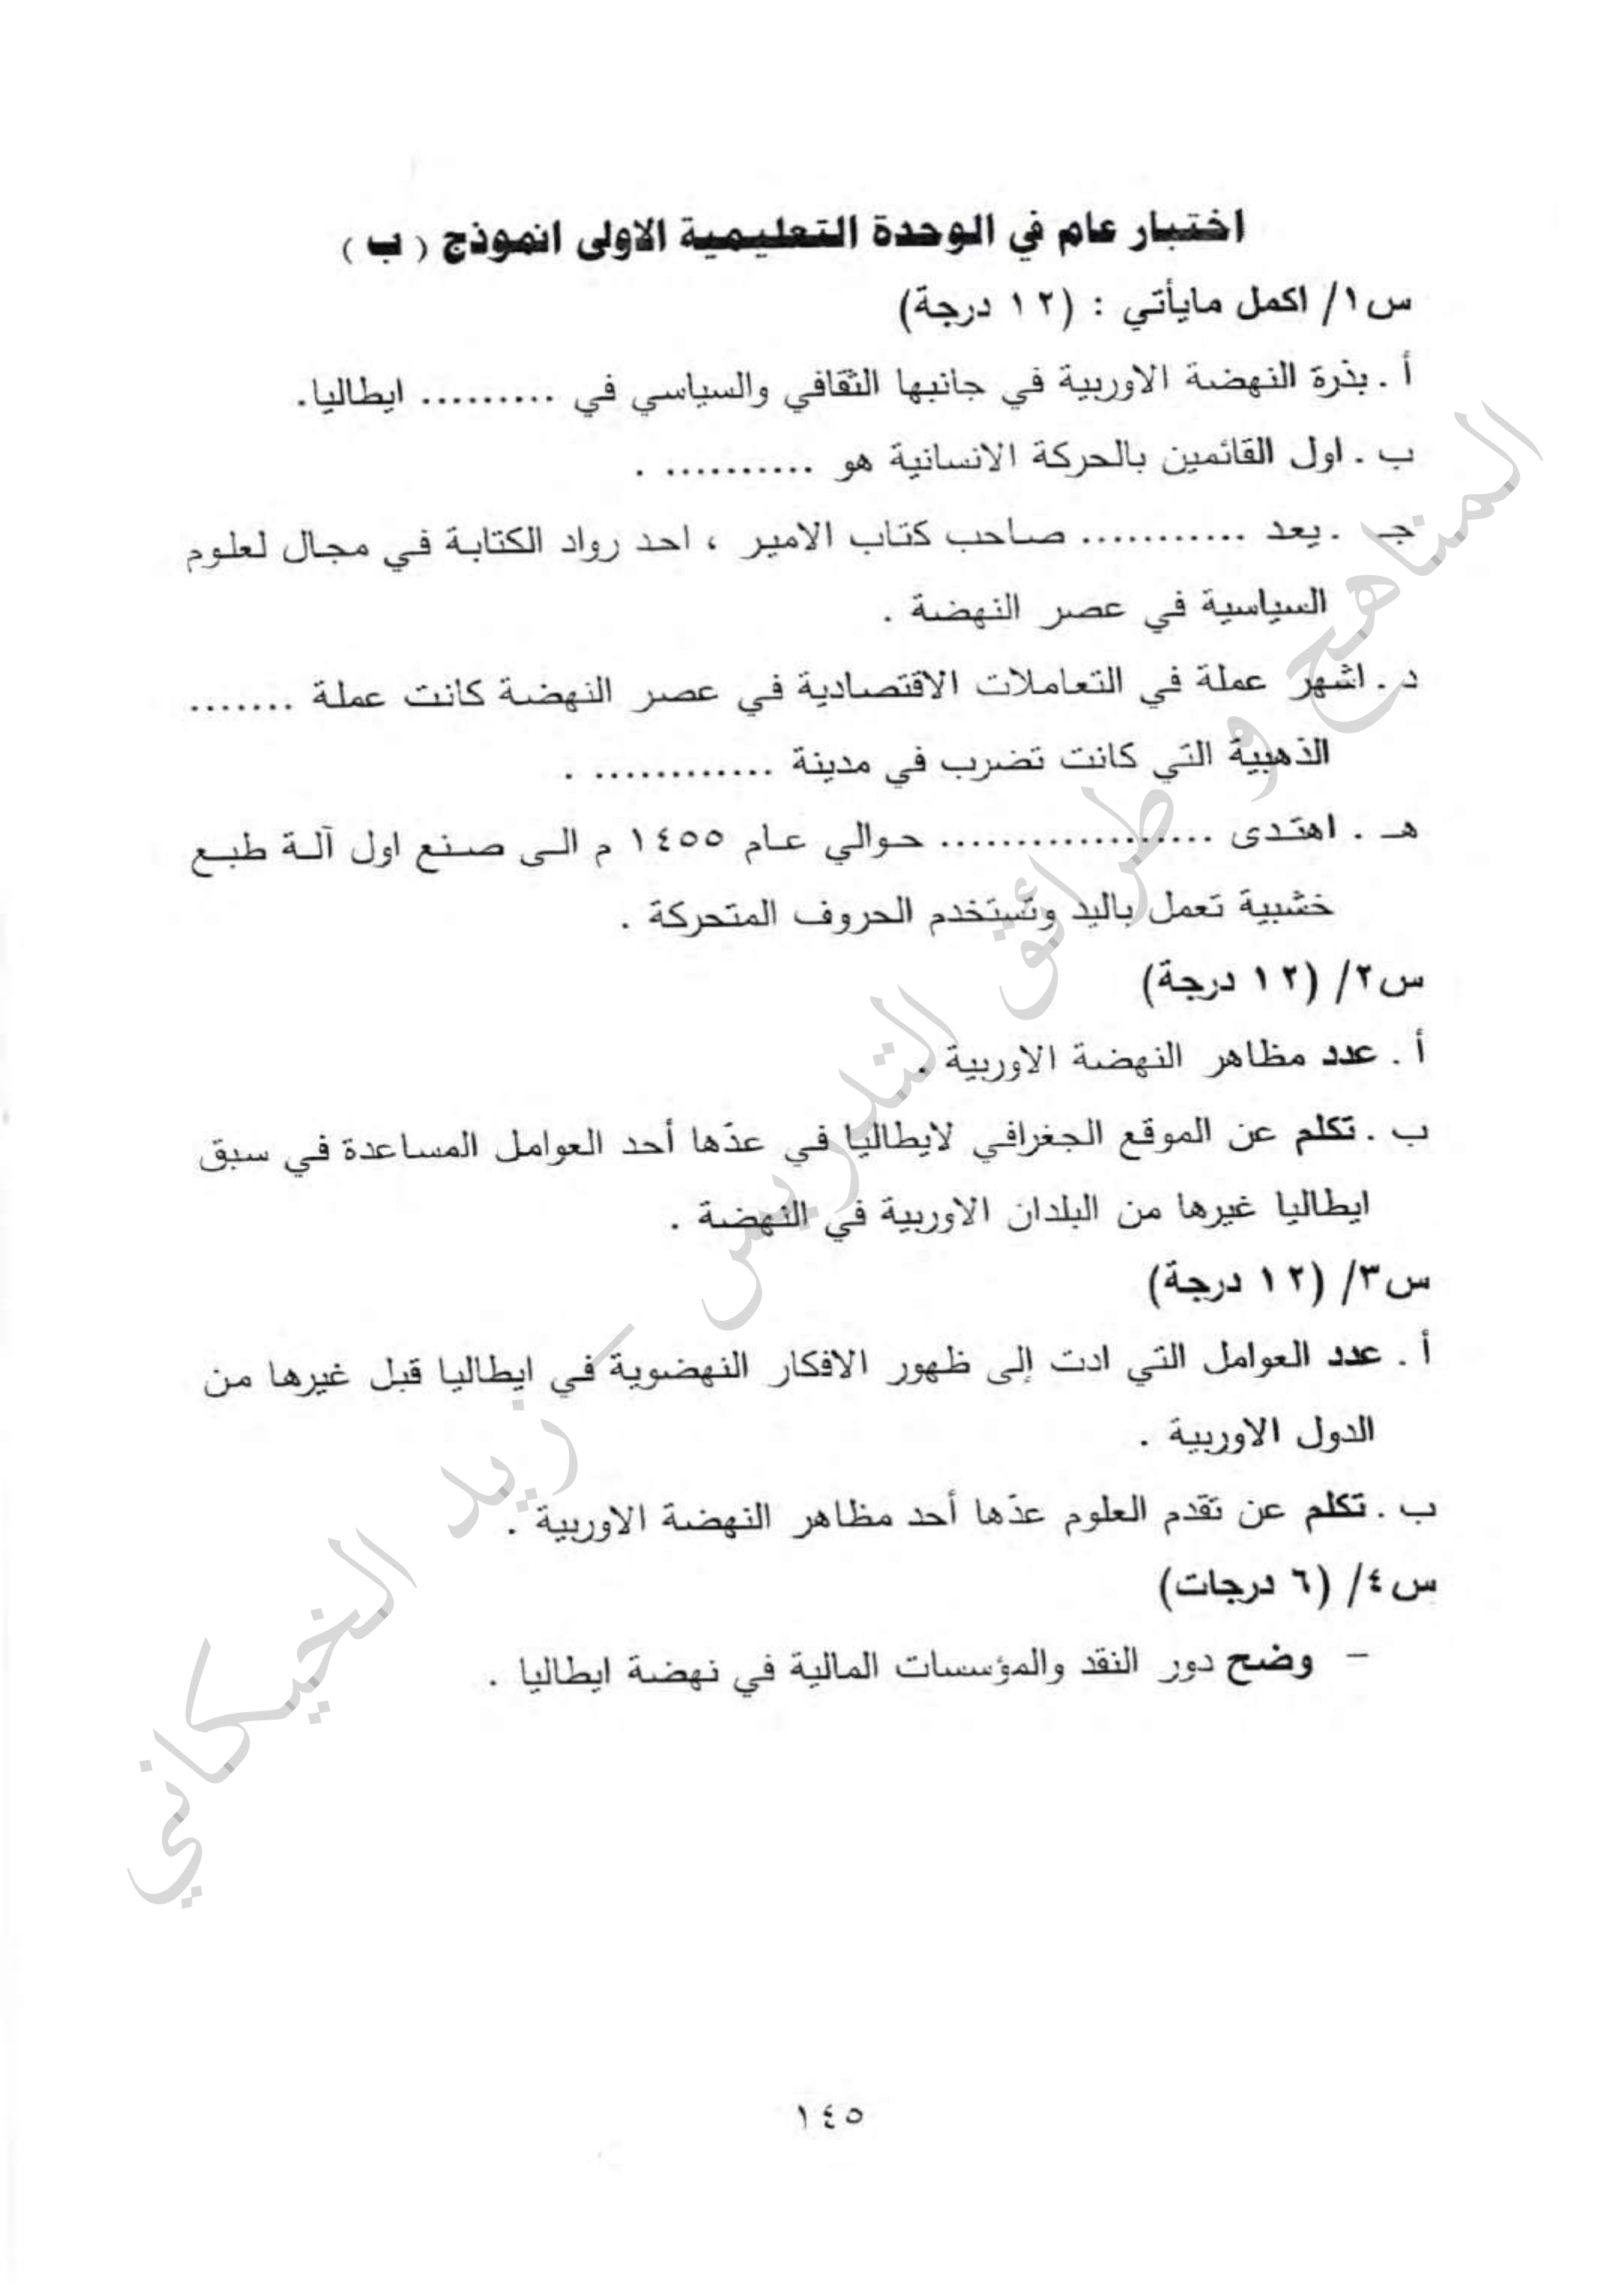 اختبار عام في الوحدة التعليمية الاولى انموذج ( ب )
س١/ اكمل مايأتي : (١٢ درجة)
أ . بذرة النهضة الاوربية في جانبها الثقافي والسياسي في ......... ايطاليا.
ب . اول القائمين بالحركة الانسانية هو .......... .
جـ . يعد ........... صاحب كتاب الامير ، احد رواد الكتابة في مجال لعلوم
السياسية في عصر النهضة .
د . اشهر عملة في التعاملات الاقتصادية في عصر النهضة كانت عملة .......
الذهبية التي كانت تضرب في مدينة ............ .
هـ . اهتدى .................. حوالي عام ١٤٥٥ م الى صنع اول آلة طبع
خشبية تعمل باليد وتستخدم الحروف المتحركة .
س٢/ (١٢ درجة)
أ . عدد مظاهر النهضة الاوربية .
ب . تكلم عن الموقع الجغرافي لايطاليا في عدّها أحد العوامل المساعدة في سبق
ايطاليا غيرها من البلدان الاوربية في النهضة .
س٣/ (١٢ درجة)
أ . عدد العوامل التي ادت إلى ظهور الافكار النهضوية في ايطاليا قبل غيرها من
الدول الاوربية .
ب . تكلم عن تقدم العلوم عدّها أحد مظاهر النهضة الاوربية .
س٤/ (٦ درجات)
– وضح دور النقد والمؤسسات المالية في نهضة ايطاليا .
١٤٥
المناهج وطرائق التدريس – زيد الخيكاني